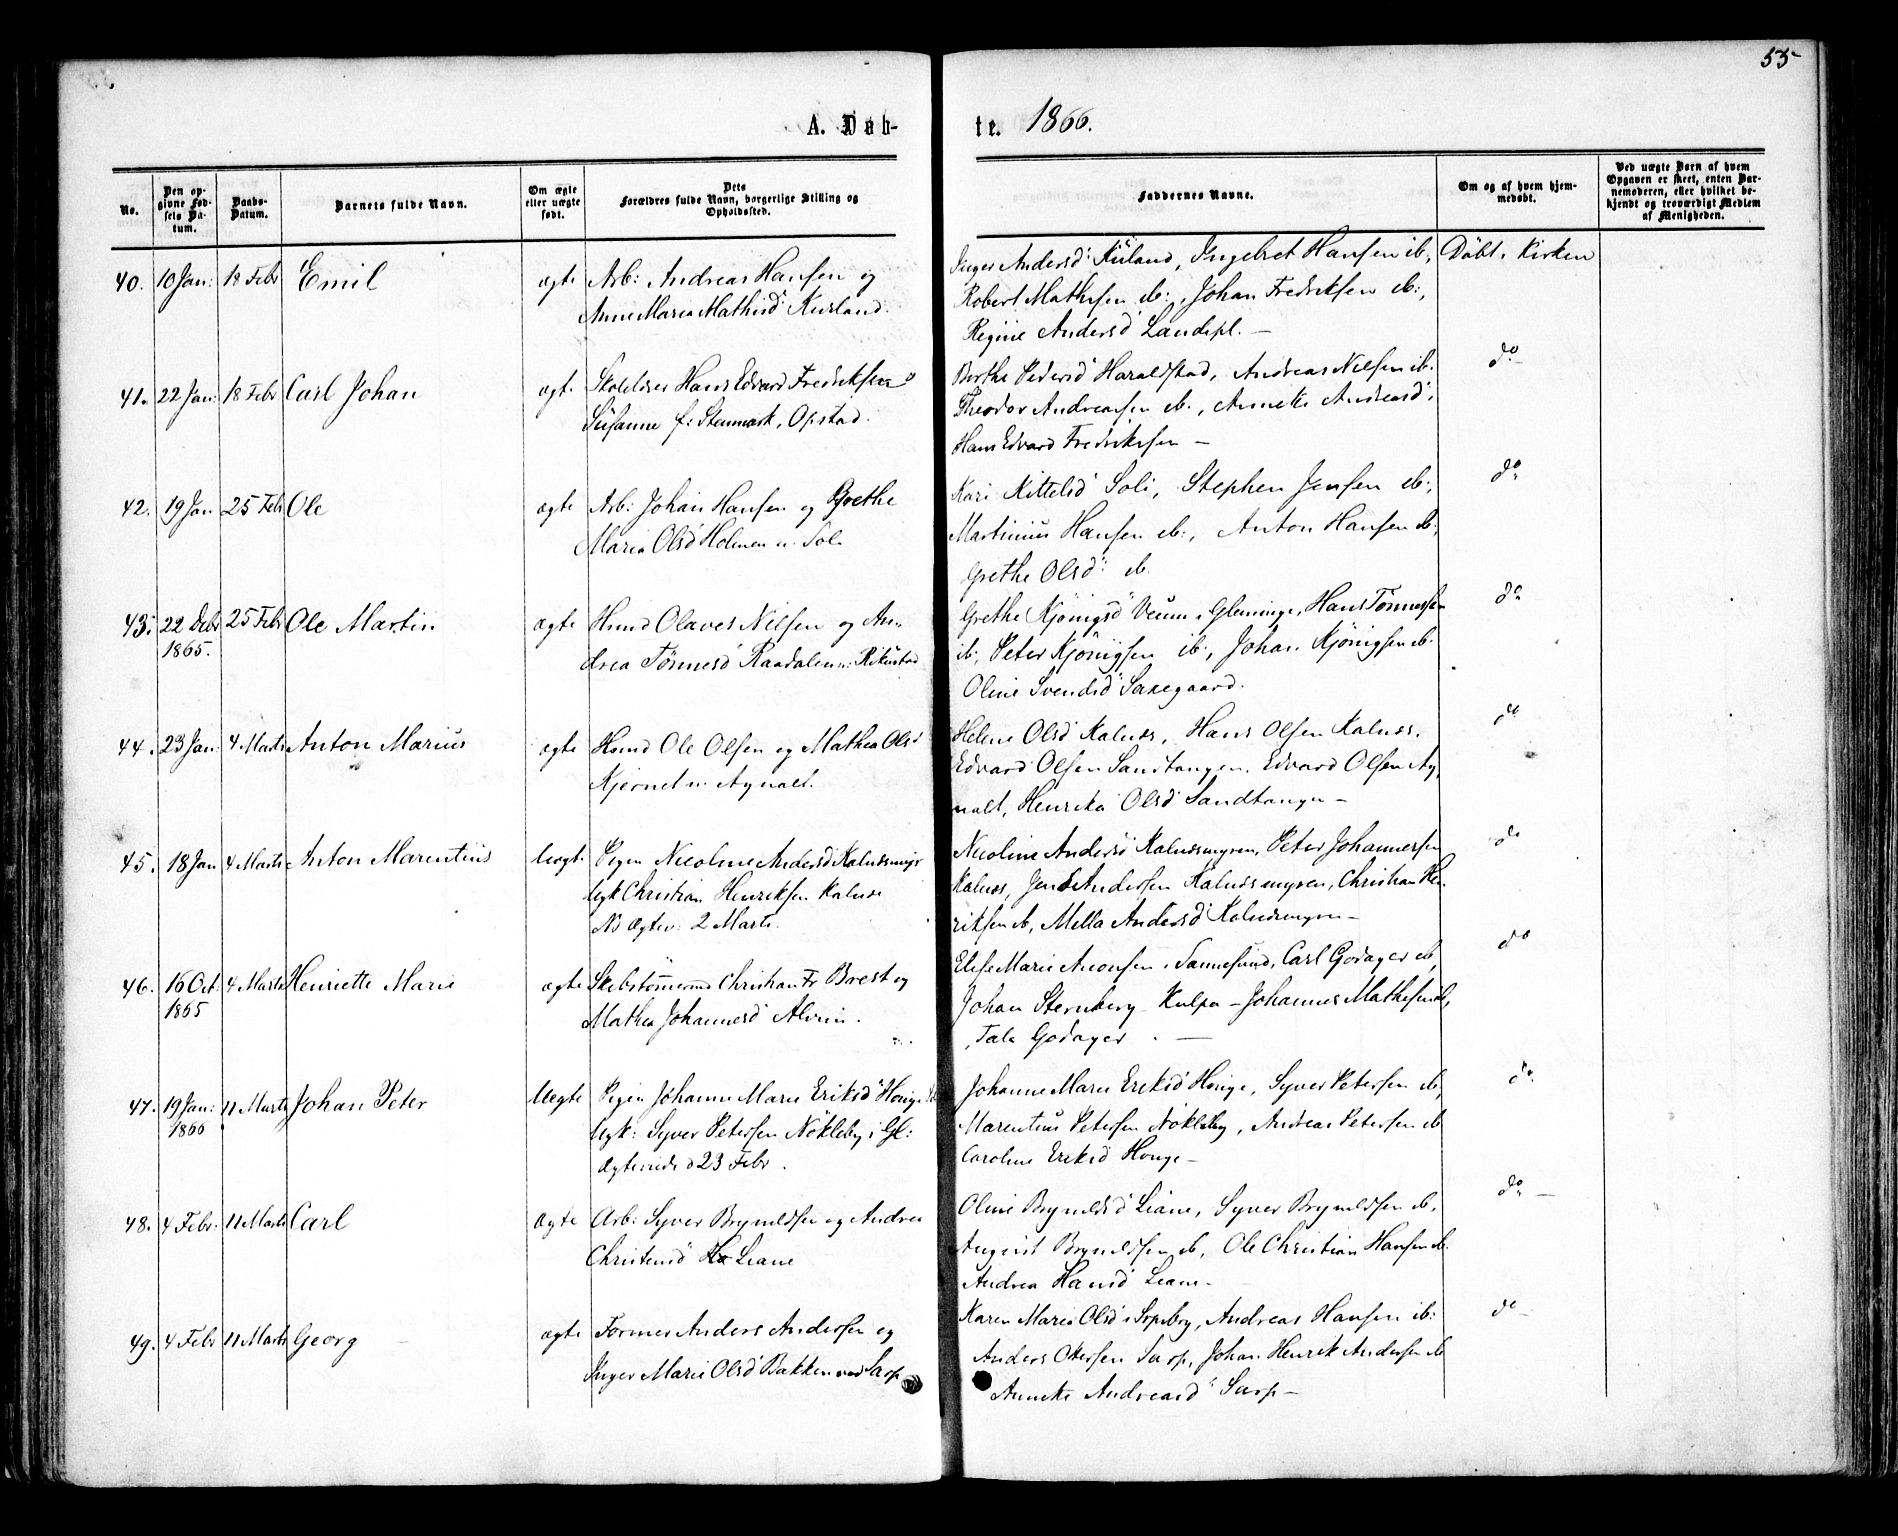 55
A. Døb-
te. 1866.
No.
Den opgivne Fødsels Datum.
Daabs-Datum.
Barnets fulde Navn.
Om ægte eller uægte født.
Dets Forældres fulde Navn, borgerlige Stilling og Opholdssted.
Faddernes Navne.
Om og af hvem hjemmedøbt.
Ved uægte Børn af hvem Opgaven er skeet, enten Barnemoderen, eller hvilket bekjendt og troværdigt Medlem af Menigheden.
40. 10 Jan: 18 Febr Emil ægte Arb: Andreas Hansen og
Anne Maria Mathisd Kusland.
Inger Andersd Kusland, Ingebret Hansen ib, Døbt i Kirken
Robert Mathisen ib:, Johan Fredriksen ib:,
Regine Andersd Landspl. –
41. 22 Jan: 18 Febr Carl Johan ægte Skolelærer Hans Edvard Fredriksen o
Susanne f: Stenmark, Opstad.
Berthe Pedersd Haraldstad, Andreas Nilsen ib. do
Theodor Andreasen ib., Annete Andreasd
Hans Edvard Fredriksen –
42. 19 Jan 25 Febr Ole ægte Arb: Johan Hansen og Grethe
Maria Olsd Holmen u. Soli
Kari Kittelsd Soli, Stephen Jensen ib:, do
Martinius Hansen ib:, Anton Hansen ib,
Grethe Olsd ib.
43. 22 Debr 25 Febr Ole Martin ægte Hmd Olaves Nilsen og An-
1865.
drea Tønnesd Raadalen u: Rikustad
Grethe Kjönigsd Veum i Glemminge, Hans Tønnesen do
ib:, Peter Kjönigsen ib:, Johan Kjönigsen ib.
Oline Svendsd Saxegaard.
44. 23 Jan: 4 Marts Anton Marius ægte Hsmd Ole Olsen og Mathea Olsd
Kjernet u. Agnalt.
Helene Olsd Kalnes, Hans Olsen Kalnes, do
Edvard Olsen Sandtangen, Edvard Olsen Ag-
nalt, Henrika Olsd Sandtangen –
45. 18 Jan 4 Marts Anton Marentius Uægt. Pigen Nicoline Andersd Kalnesmyr
Ugk Christian Henriksen Kalnes
NB Ægtev: 2 Marts.
Nicoline Andersd Kalnesmyren, Peter Johannesen do
Kalnes, Jens Andersen Kalnesmyren, Christian Hen-
riksen ib, Mella Andersd Kalnesmyren –
46. 16 Oct 4 Marts Henriette Marie ægte Skibstømmermd Christian Fr Brest og
1865
Mathea Johannesd Alvim.
Elise Marie Aronsen, Sannesund, Carl Godager ib, do
Johan Sternberg Kulpe – Johannes Mathisen ib,
Tale Godager –
47. 19 Jan: 11 Marts Johan Peter Uægte Pigen Johanne Marie Eriksd Honge
1866
Ugk: Syver Petersen Nökleby i Gl:
Ægteviede d 23 Febr.
Johanne Marie Eriksd Honge, Syver Petersen ib, do.
Marentius Petersen Nökleby, Andreas Petersen ib
Caroline Eriksd Honge –
48. 4 Febr. 11 Marts Carl ægte Arb: Syver Brynildsen og Andrea
Christensd Liane
Oline Brynildsd Liane, Syver Brynildsen ib, do –
August Brynildsen ib, Ole Christian Hansen ib.
Andrea Hansd Liane –
49. 4 Febr 11 Marts Georg – ægte Former Anders Andersen og
Inger Marie Olsd Bakken ved Sarp
Karen Maria Olsd i Sarpsborg, Andreas Hansen ib: do –
Anders Olsen Sarp, Johan Henrik Andersen ib
Annete Andreasd Sarp –